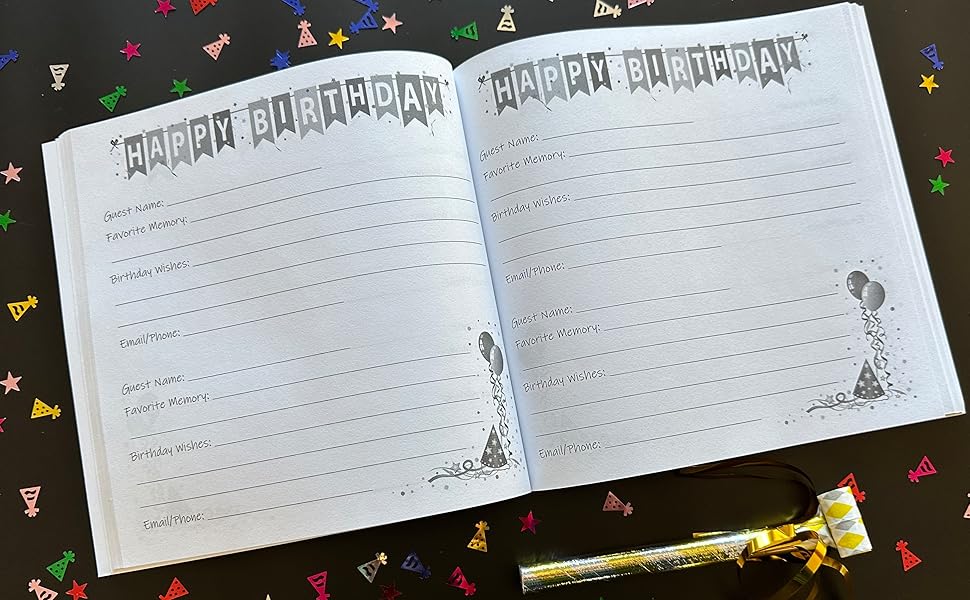 HAPPY BIRTHDAY
Guest Name:
Favorite Memory:
Birthday Wishes:
Email/Phone:
Guest Name:
Favorite Memory:
Birthday Wishes:
Email/Phone:
HAPPY BIRTHDAY
Guest Name:
Favorite Memory:
Birthday Wishes:
Email/Phone:
Guest Name:
Favorite Memory:
Birthday Wishes:
Email/Phone: